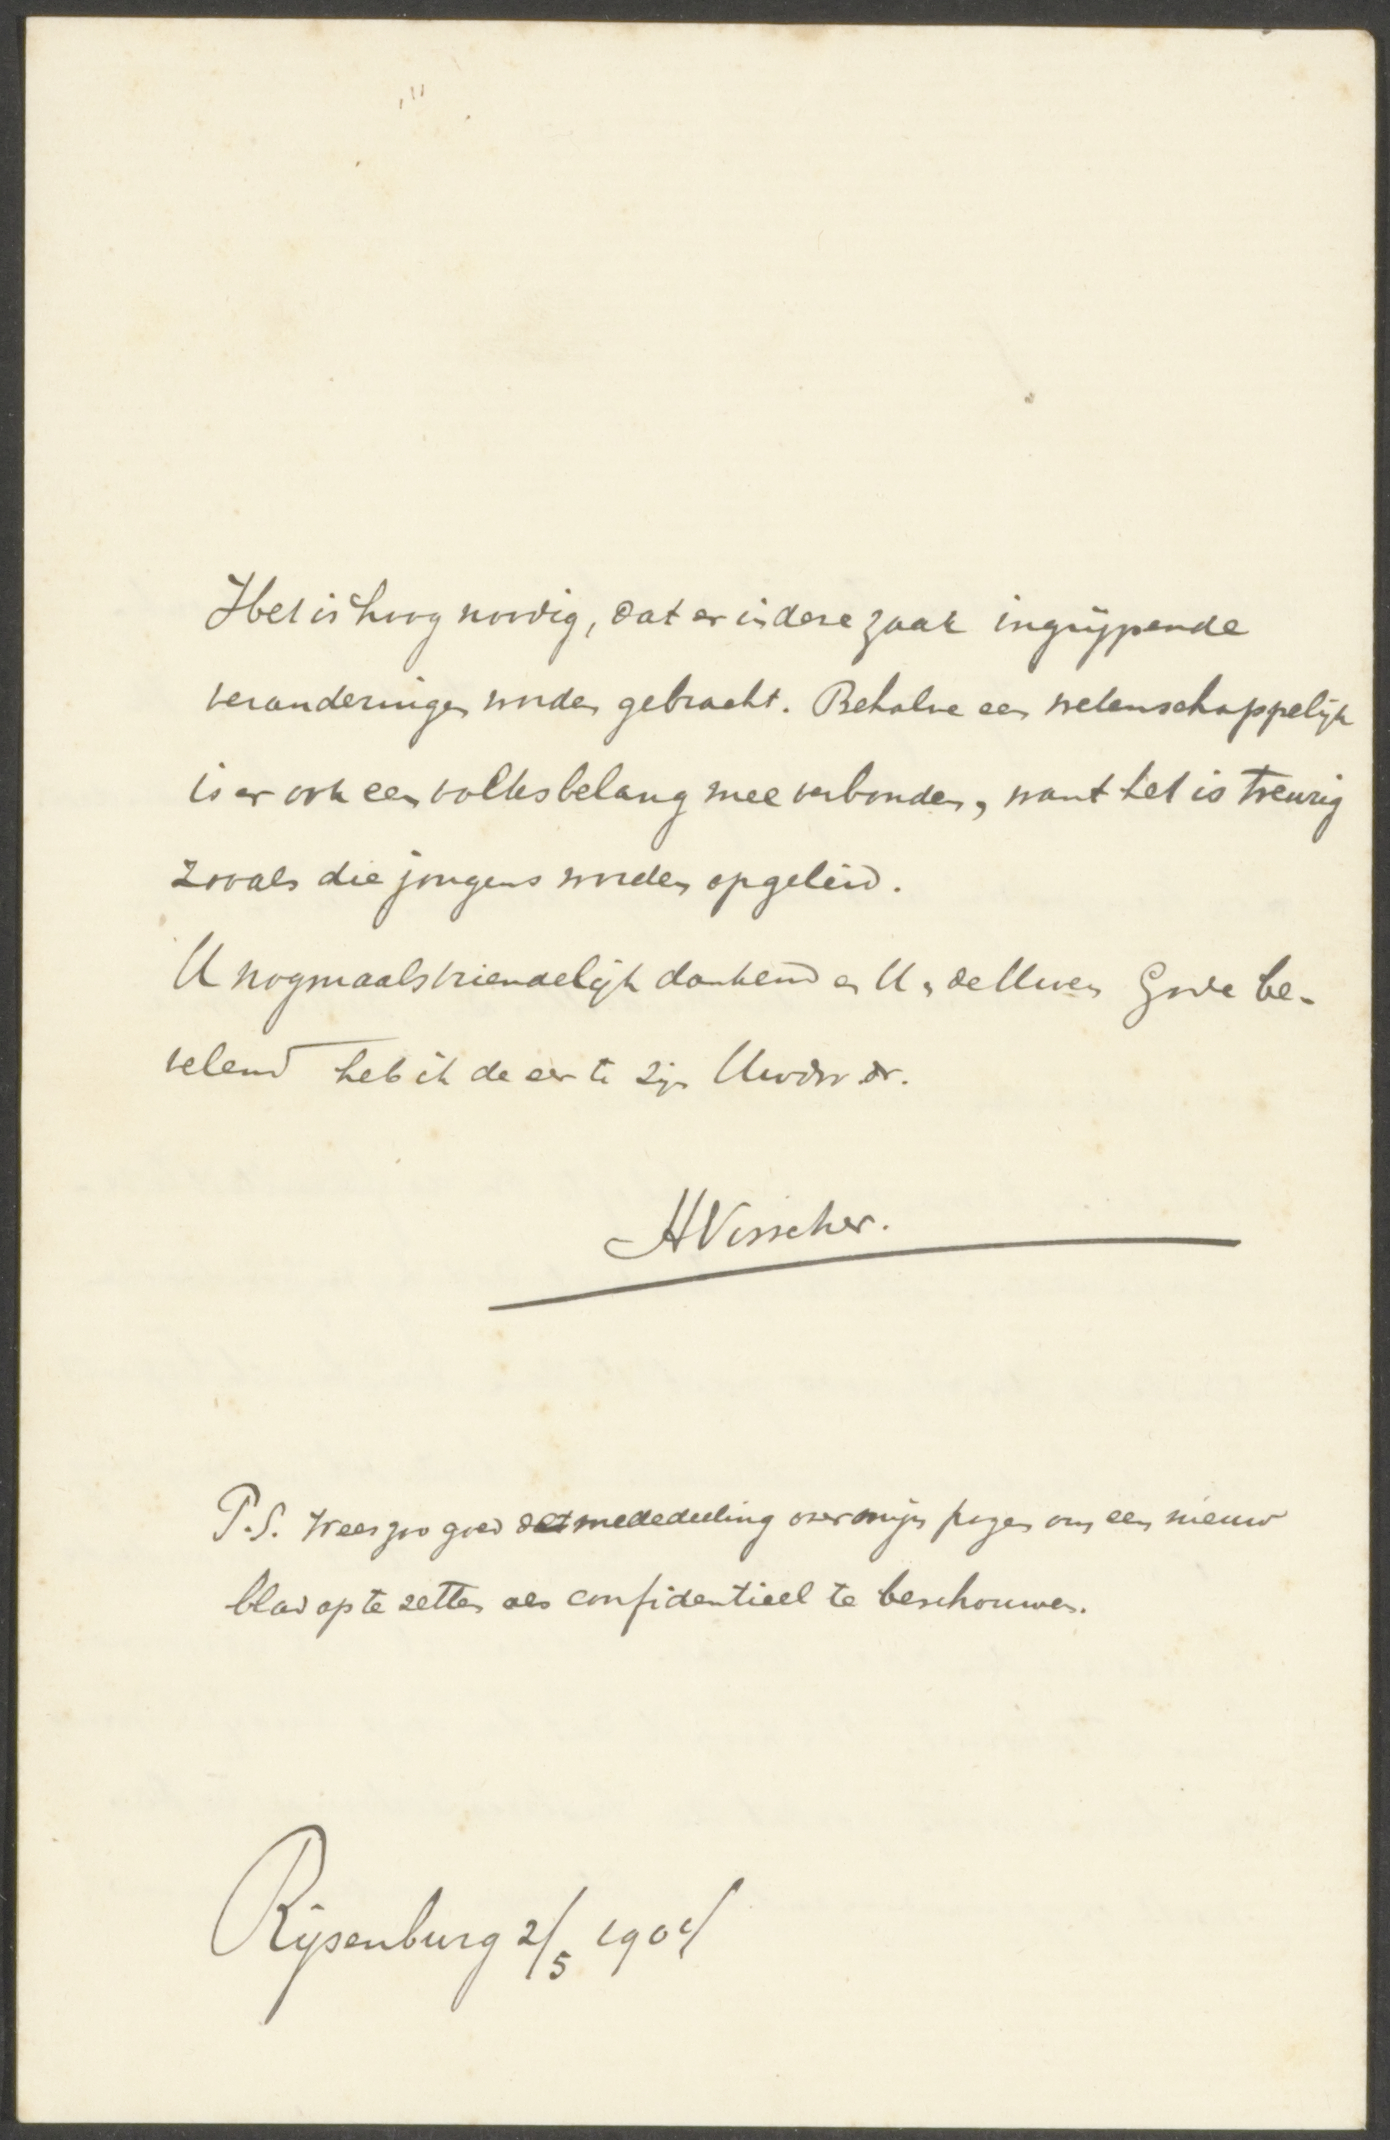 Het is hoog noodig, dat er in deze zaak ingrijpende
veranderingen worden gebracht. Behalve een wetenschappelijk
is er ook een volksbelang mee verbonden, want het is treurig
zooals die jongens worden opgeleid.
U nogmaals vriendelijk dankend en U en de Uwen Gode be-
velend heb ik de eer te zijn Uwdw dr.
HVisscher.
P.S. Wees zoo goed mededeeling over mijn pogen om een nieuw
blad op te zetten als confidentieel te beschouwen.
Rijsenburg 2/5 1904